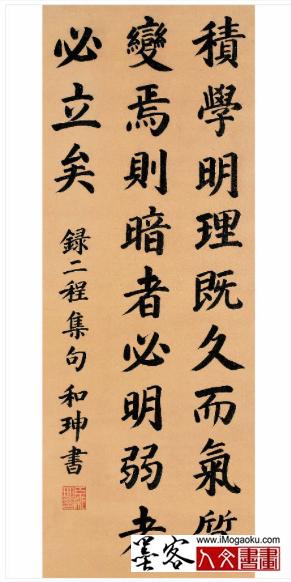 積學明理既久而氣質
變焉則暗者必明弱者
必立矣
録二程集句 和珅書
www.iMogaoku.com
墨客
人文書畫